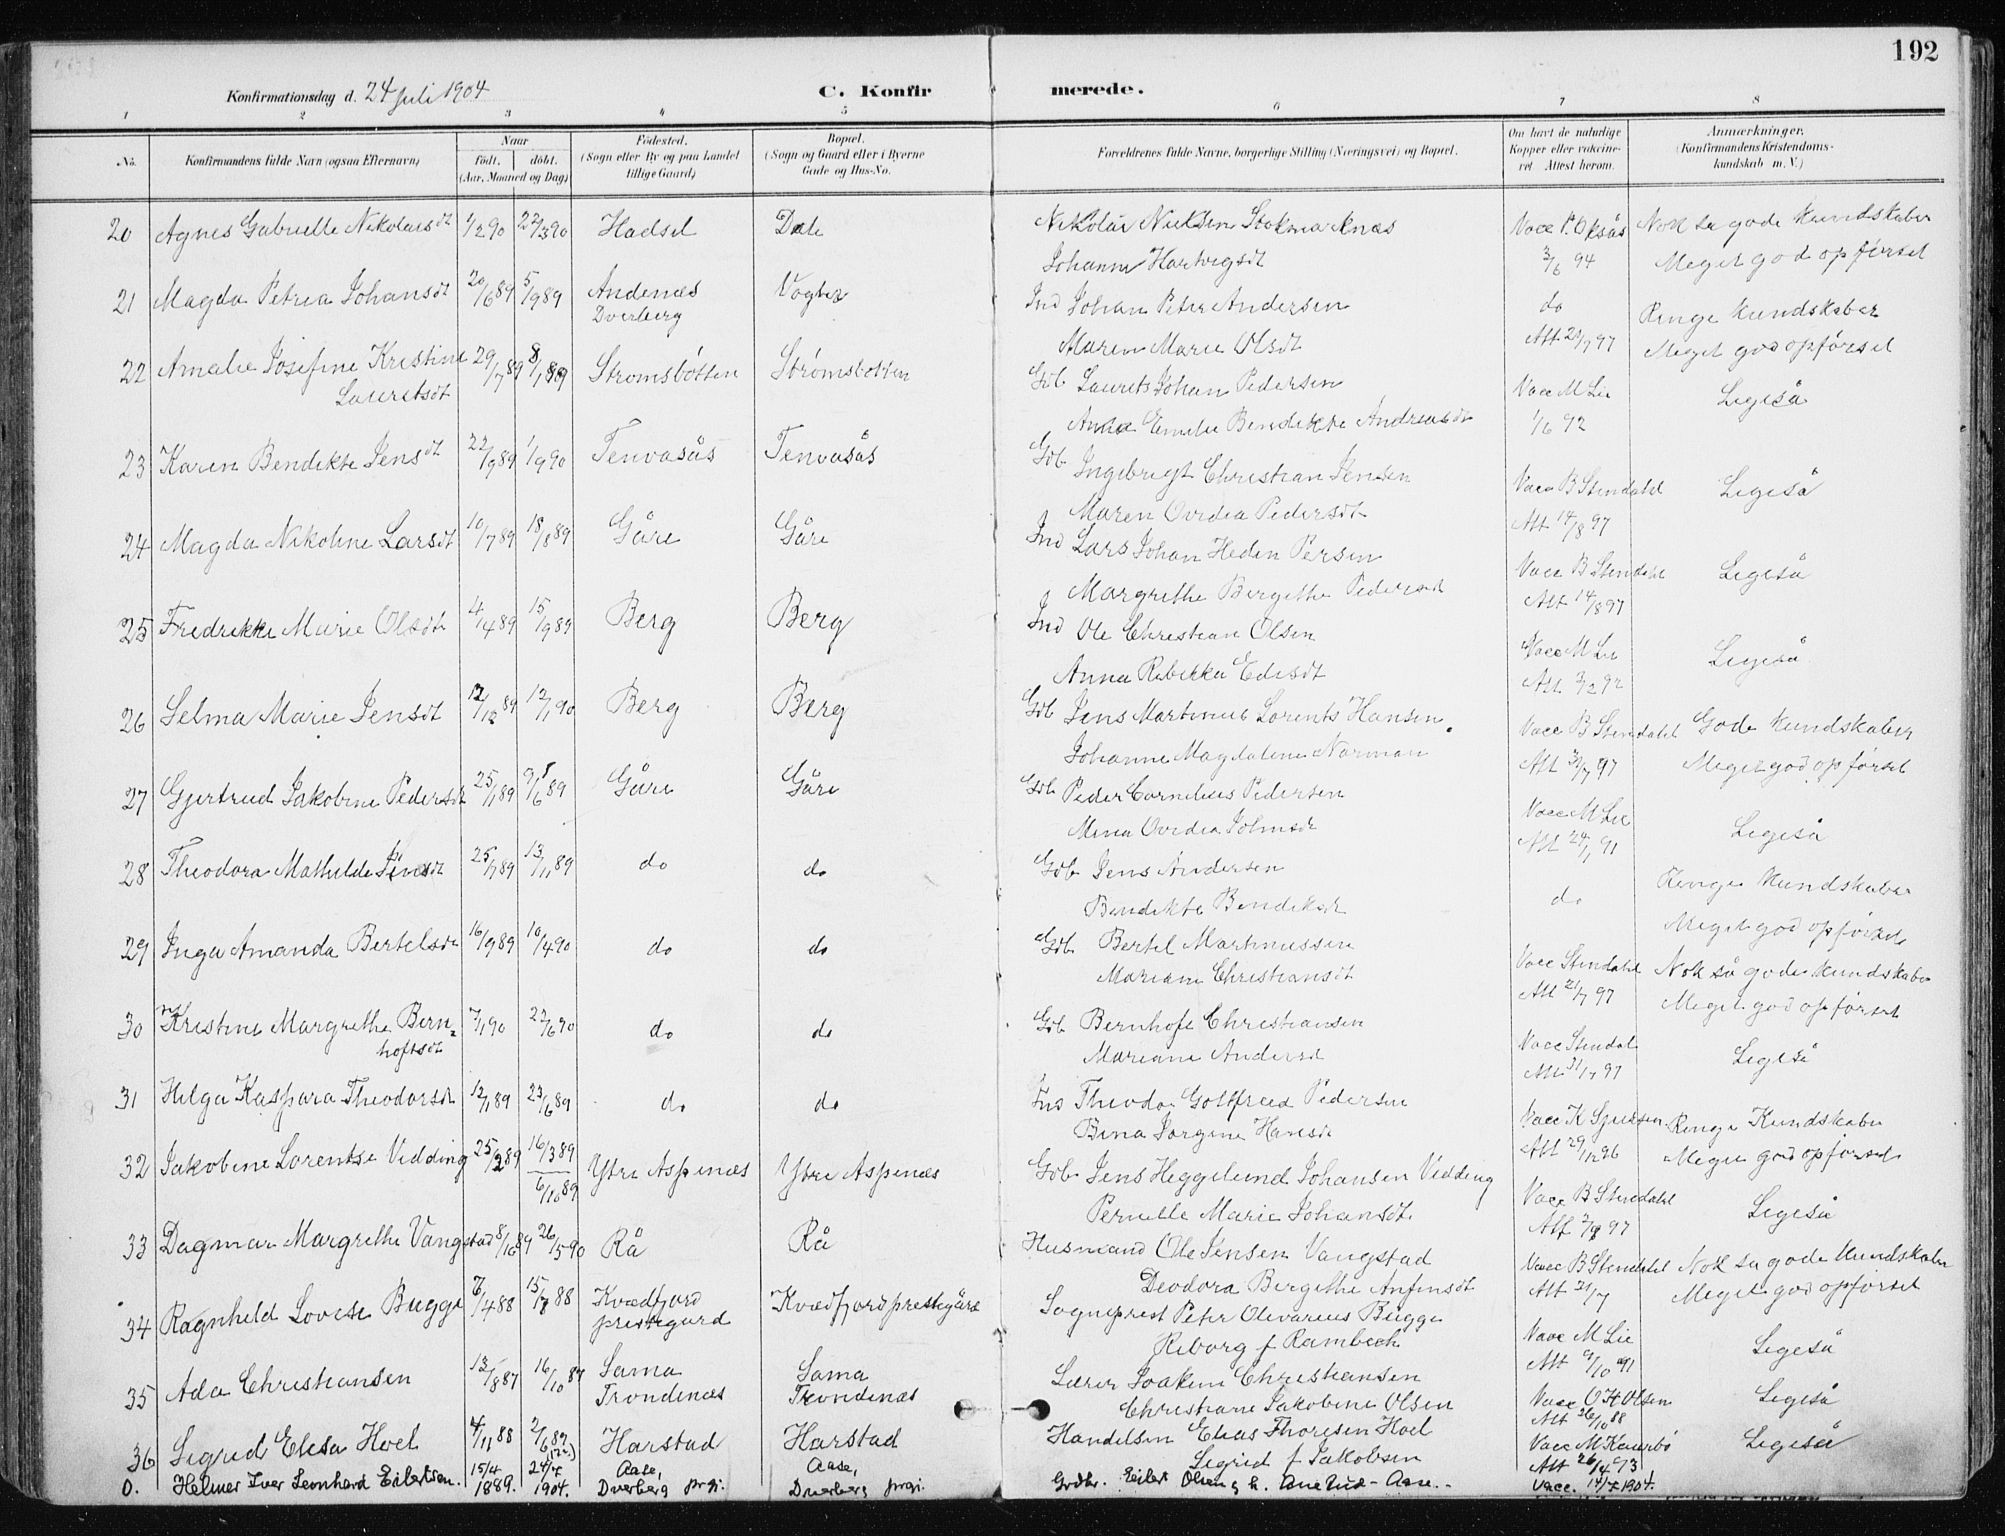 192
Konfirmationsdag d. 24 juli 1904 C. Konfirmerede.
1 2 3 4 5 6 7 8
No. Konfirmandens fulde Navn (ogsaa Efternavn) Naar födt. döbt. (Aar, Maaned og Dag) Födested. (Sogn eller By og paa Landet tillige Gaard) Bopæl. (Sogn og Gaard eller i Byerne Gade og Hus-No. Forældrenes fulde Navne, borgerlige Stilling (Næringsvei) og Bopæl. Om havt de naturlige Kopper eller vakcineret Attest herom. Anmærkninger. (Konfirmandens Kristendomskundskab m. V.)
20 Agnes Gabrielle Nikolaisdt 1/2 90 23/3 90 Hadsel Dale Nikolai Nielsen Stokmarknæs Vacc P. Oksås Nok sa gode kundskaber
Johanna Hartvigsdt 3/6 94 Meget god opførsel
21 Magda Petrea Johansdt 20/6 89 5/9 89 Andenæs Dverberg Ind Johan Peter Andersen do Ringe kundskaber
Maren Marie Olsdt Att 20/7 97 Meget god opførsel
22 Amalie Josefine Kristine Lauretsdt 29/7 89 Strømsbotten Strømsbotten Gdb Laurits Johan Pedersen Vacc M Lie Ligeså
Emilie Bendikte Andreasdt 1/6 92
23 Karen Bendikte Jensdt 22/9 89 1/9 90 Tenvasås Tenvasås Gdb Ingebrigt Christian Jensen Vacc B Stendahl Ligeså
Maren Ovidia Pedersdt Att 14/8 97
24 Magda Nikoline Larsdt 10/7 89 18/8 89 Gåre Gåre Ind Lars Johan Heden Persen Vacc B Stendahl Ligeså
Margrethe Bergithe Pedersdt Att 14/8 97
25 Fredrikke Marie Olsdt 4/4 89 15/9 89 Berg Berg Ind Ole Christian Olsen Vacc M Lie Ligeså
Anna Rebekka Edisdt Att 3/2 92
26 Selma Marie Jensdt 12/12 89 12/1 90 Berg Berg Gdb Jens Martinus Lorents Hansen Vacc B Stendahl Gode kundskaber
Johanne Magdalene Norman Att 31/7 97 Meget god opførsel
27 Gjertrud Jakobine Pedersdt 25/1 89 9/6 89 Gåre Gåre Gdb Peder Cornelius Pedersen Vacc M Lie Ligeså
Mina Ovidia Johnsdt Att 24/1 91
28 Theodora Mathilde Jensdt 25/7 89 13/11 89 do do Gdb Jens Andersen do Ringe kundskaber
Bendikte Bendiksdt Meget god opførsel
29 Inga Amanda Bertelsdt 16/9 89 10/4 90 do do Gdb Bertel Martinussen Vacc Stendahl Nok så gode kundskaber
Mariane Christiansdt Att 21/7 97 Meget god opførsel
30 Kristine Margrethe Bernhoftsdt 7/1 90 22/6 90 do do Gdb Bernhoft Christiansen Vacc Stendal Ligeså
Mariane Andersdt Att 31/7 97
31 Helga Kaspara Theodorsdt 12/1 89 23/6 89 do do Ins Theodor Gottfried Pedersen Vacc K Ringe Kundskaber
Bina Jørgine Hansdt Att 29/11 96 Meget god opførsel
32 Jakobine Lorentse Vidding 25/2 89 16/3 89 6/10 89 Ytre Aspenæs Ytre Aspenæs Gdb Jens Heggelund Johansen Vidding Vacc B Stendahl Ligeså
Pernille Marie Johansdt Att 7/8 97
33 Dagmar Margrethe Vangstad 8/10 89 26/5 90 Rå Rå Husmand Ole Jensen Vangstad Vacc B Stendahl Nok sa gode kundskaber
Deodora Bergithe Anfinsdt Att 21/7 Meget god opførsel
34 Ragnhild Lovise Bugge 6/4 88 15/7 88 Kvædfjord prestegard Kvædfjord prestegård Sogneprest Peter Olivarius Bugge Vacc M Lie Ligeså
Riborg f Rambech Att 9/10 91
35 Ada Christiansen 13/8 87 16/10 87 Sama Trondenæs Sama Trondenæs Lærer Joakim Christiansen Vacc O H Olsen Ligeså
Christiane Jakobine Olsen Att 26/10 88
36 Sigrid Elisa Hoel 4/11 88 2/6 89 Harstad Harstad Handelsm Elias Thoresen Hoel Vacc M Ligeså
Sigrid f Jakobsen Att 26/4 93
0. Helmer Iver Leonhard Eilertsen. 15/4 1889. 24/7 1904. Aase, Dverberg prgj. Aase, Dverberg prgj. Grdbr. Eilert Olsen g h. Ane Aase. Vacc. 14/7 1904.